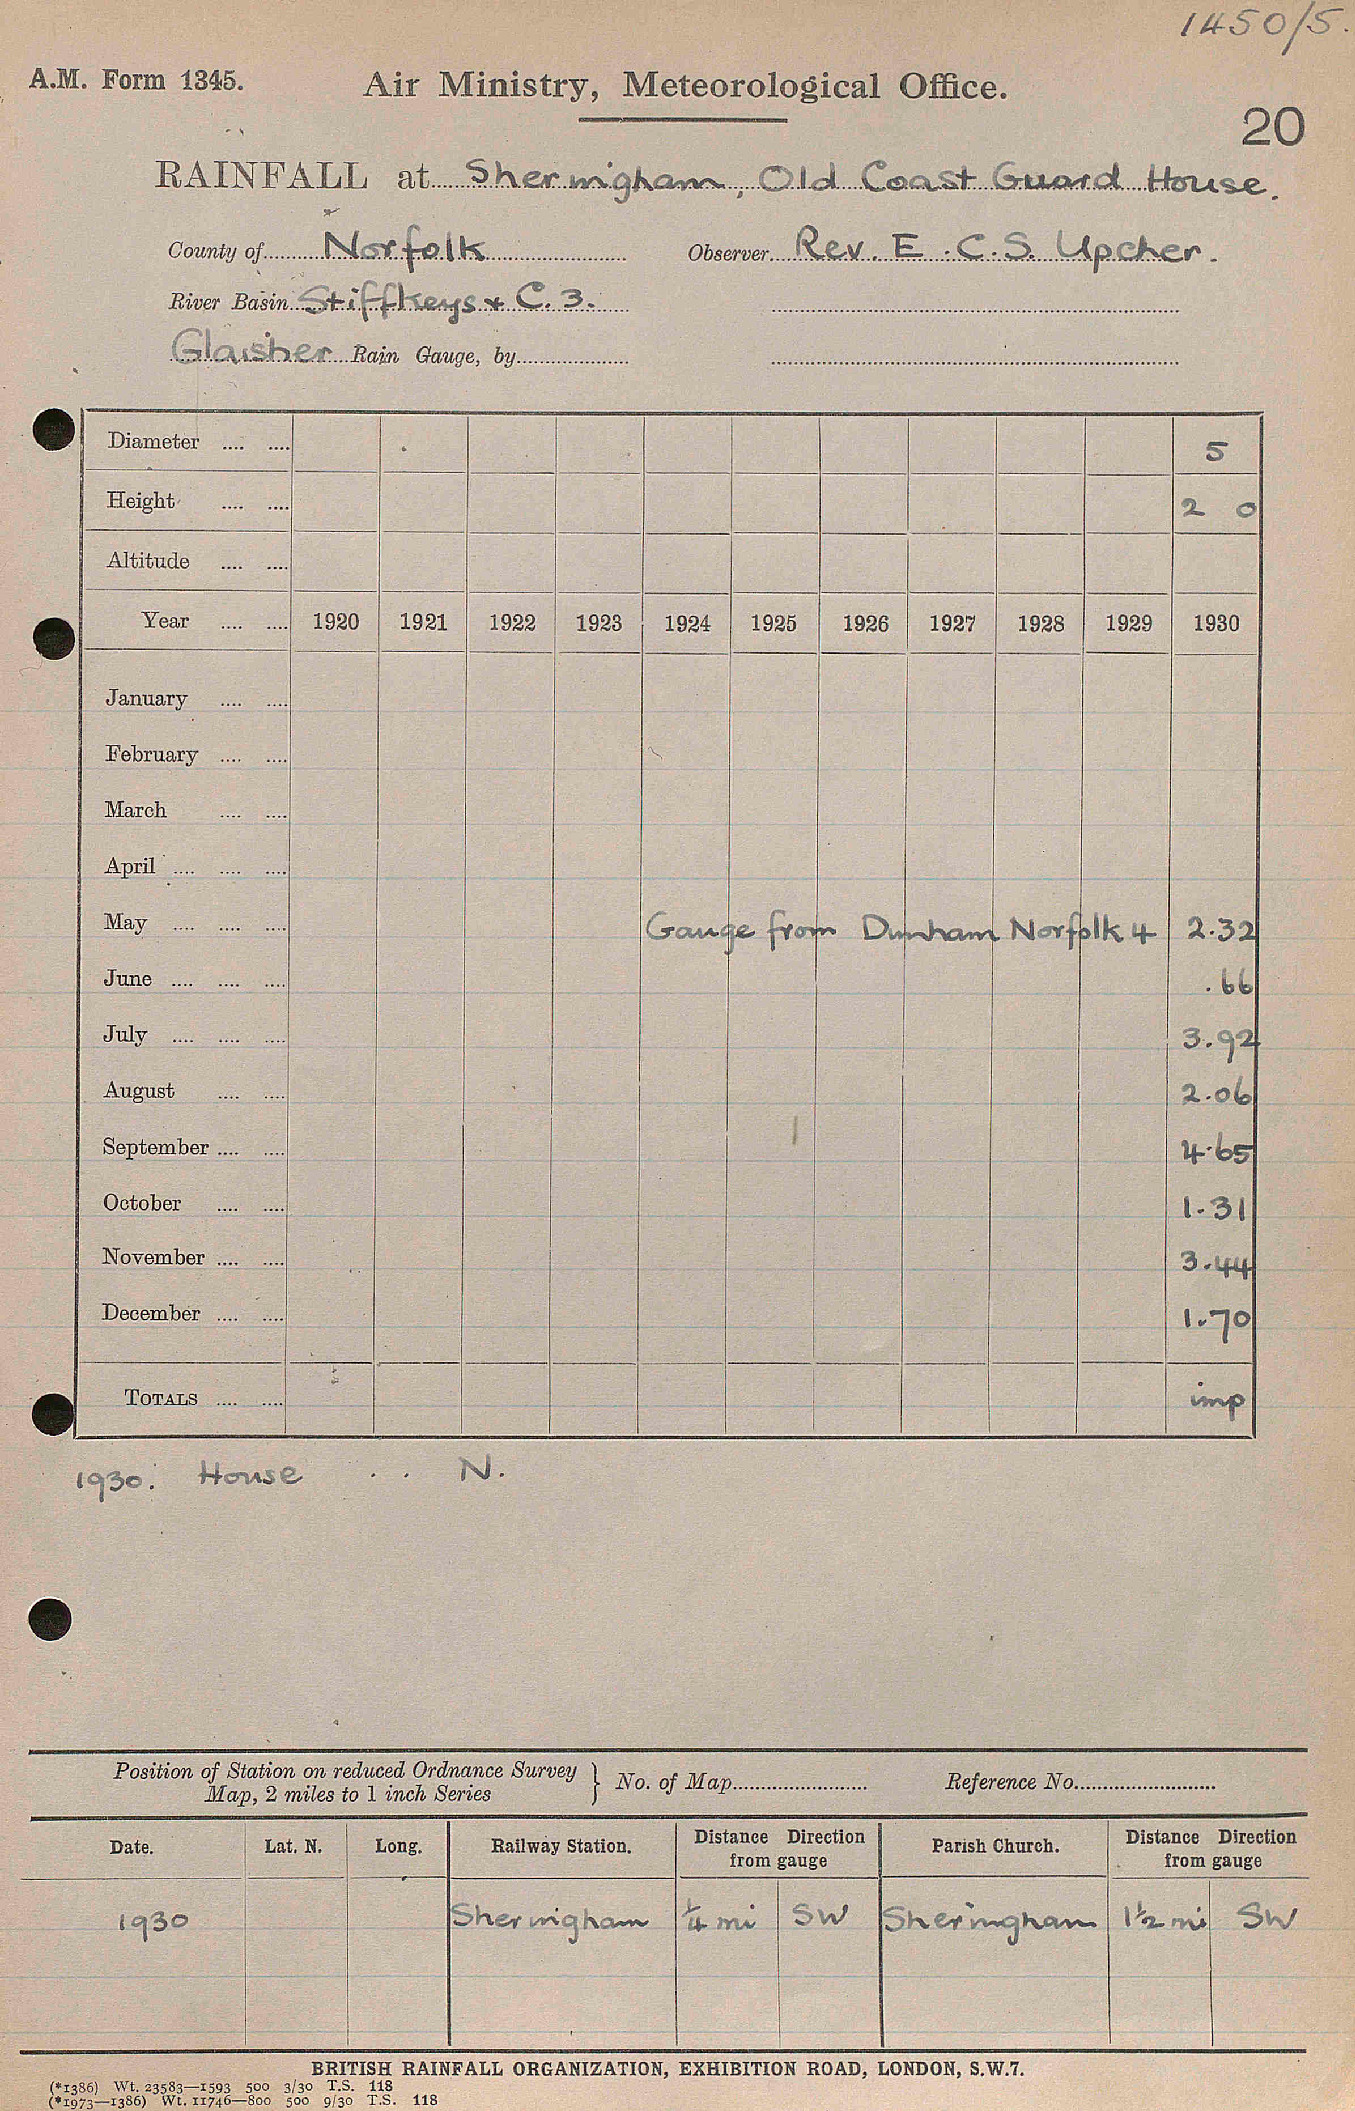 1450/5.
A.M. Form 1345. Air Ministry, Meteorological Office.
20
RAINFALL at Sheringham, Old Coast Guard House.
County of Norfolk Observer Rev. E. C. S. Upcher.
River Basin Stiffkeys & C. 3.
Glaisher Rain Gauge, by
Diameter .... .... 5
Height .... .... 2 0
Altitude .... ....
Year .... .... 1920 1921 1922 1923 1924 1925 1926 1927 1928 1929 1930
January .... ....
February .... ....
March .... ....
April .... .... ....
May .... .... .... Gauge from Dunham Norfolk 4 2.32
June .... .... .... .66
July .... .... .... 3.92
August .... .... 2.06
September .... .... 4.65
October .... .... 1.31
November .... .... 3.44
December .... .... 1.70
TOTALS .... .... imp
1930. House . . N.
Position of Station on reduced Ordnance Survey
Map, 2 miles to 1 inch Series } No. of Map Reference No.
Date. Lat. N. Long. Railway Station. Distance Direction from gauge Parish Church. Distance Direction from gauge
1930 Sheringham 1/4 mi SW Sheringham 1 1/2 mi SW
BRITISH RAINFALL ORGANIZATION, EXHIBITION ROAD, LONDON, S.W.7.
(*1386) Wt. 23583—1593 500 3/30 T.S. 118
(*1973—1386) Wt. 11746—800 500 9/30 T.S. 118